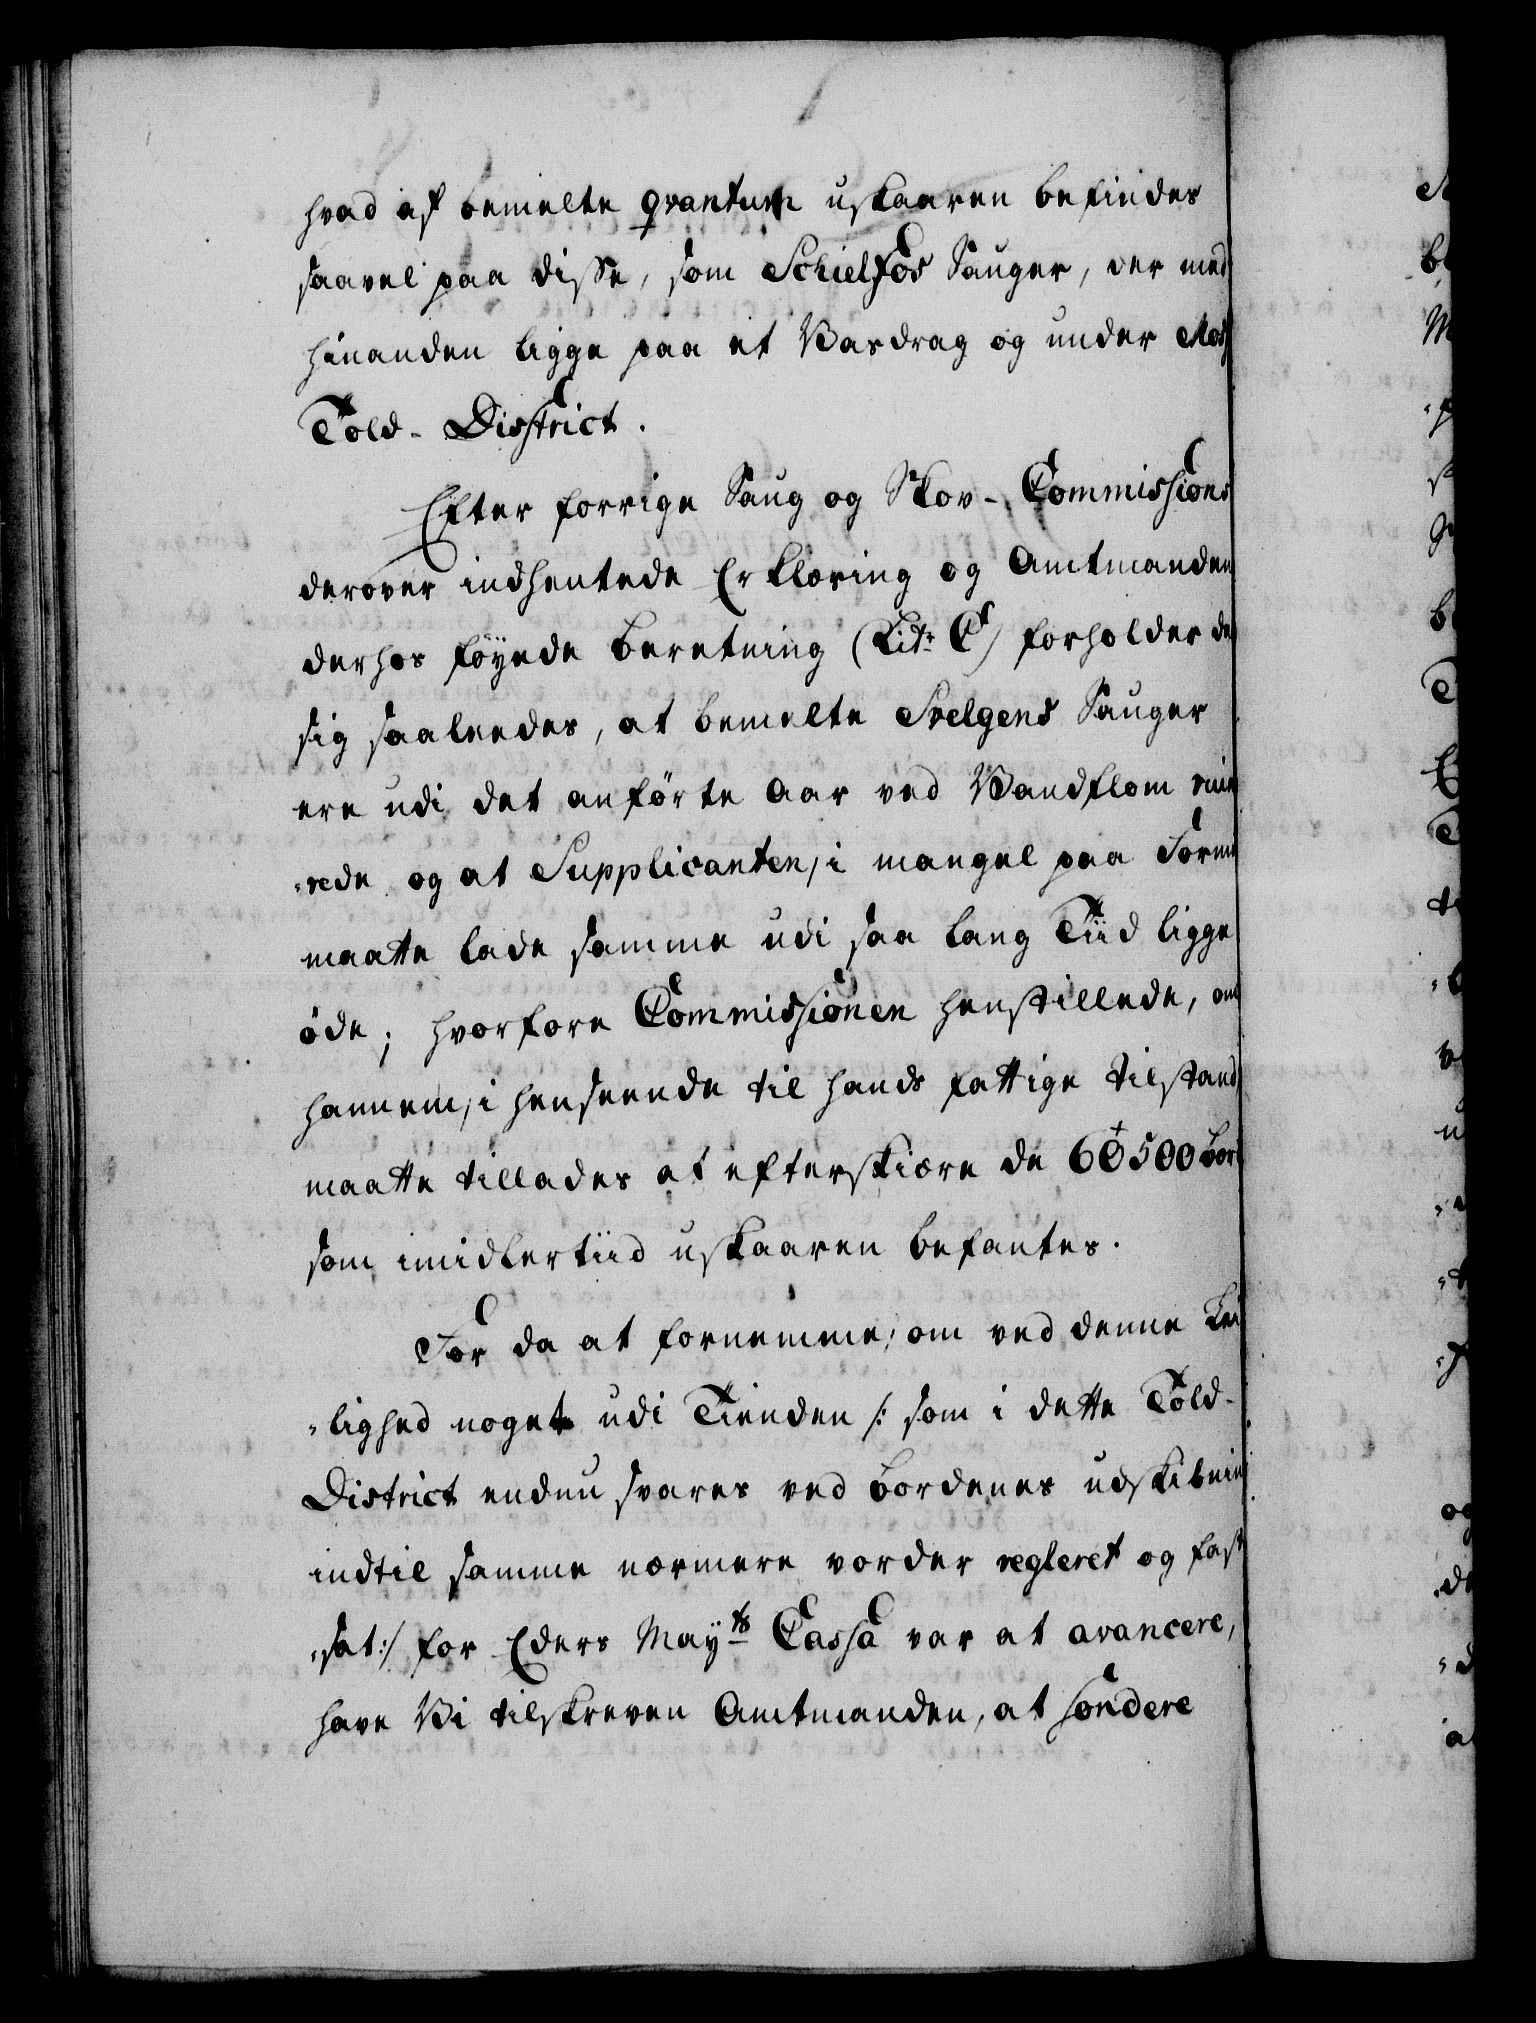 hvad af bemelte qvantum uskaaren befindes
saavel paa disse, som Schielfos Sauger, der med
hinanden ligge paa et Vasdrag og under Mos
Told-District.
Efter forrige Saug og Skov-Commissions
derover indhentede Erklæring og Amtmanden
derhos föyede beretning (Litr C) forholder de
sig saaleedes, at bemelte Svelgens Sauger
ere udi det anförte Aar ved Vandflom ruin
"rede og at Supplicanten, i mangel paa Formu
maatte lade samme udi saa lang Tiid ligge
öde; hvorfore Commissionen henstillede, om
hannem, i henseende til hands fattige tilstand
maatte tillades at efterskiære de 60500 bord
som imidlertiid uskaaren befantes.
For da at fornemme, om ved denne Lei
"lighed noget udi Tienden /: som i dette Told-
District endnu svares ved bordenes udskibning
indtil samme nærmere vorder regleret og fast
"sat:/ for Eders Mayts Cassa var at avancere,
have Vi tilskreven Amtmanden, at sondere